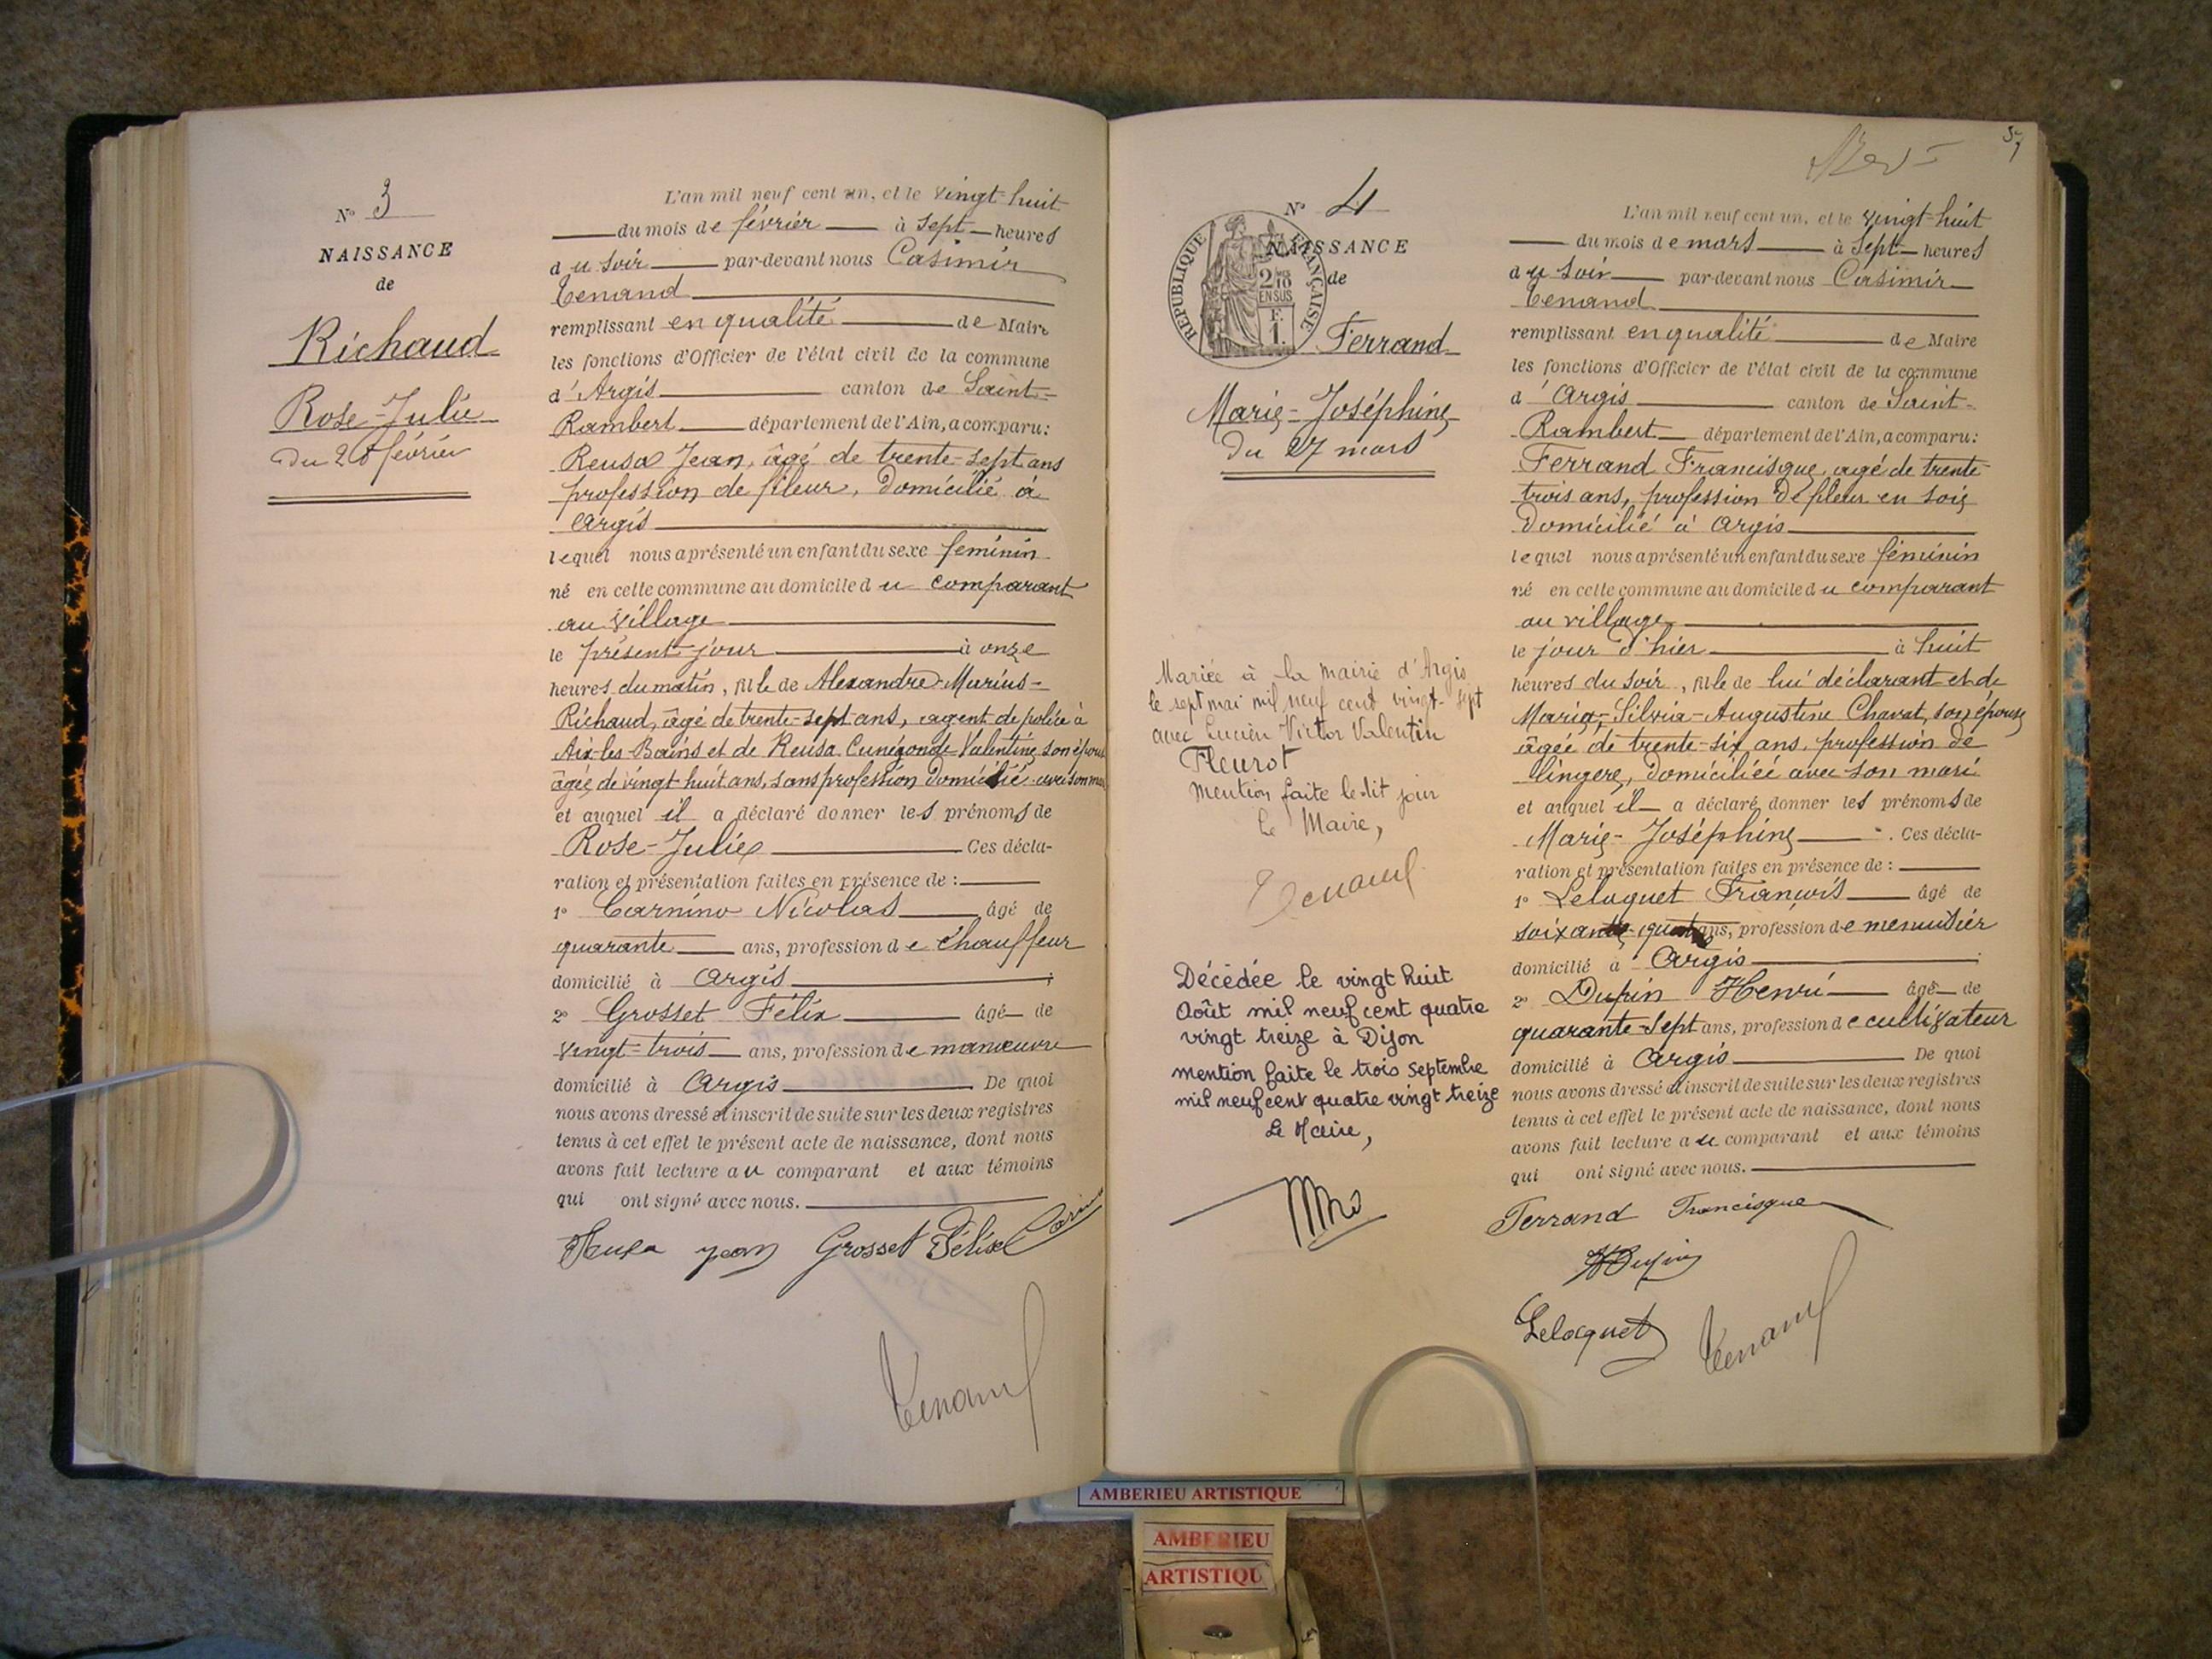 Nº 3
NAISSANCE
de
Richaud
Rose-Julie
du 28 février
L'an mil neuf cent un, et le vingt-huit
du mois de février à sept heures
du soir par-devant nous Casimir
Tenand
remplissant en qualité de Maire
les fonctions d'Officier de l'état civil de la commune
d'Argis canton de Saint-
Rambert département de l'Ain, a comparu:
Reusa Jean, âgé de trente-sept ans
profession de fileur, domicilié à
Argis
lequel nous a présenté un enfant du sexe féminin
né en cette commune au domicile du comparant
au village
le présent jour à onze
heures du matin, fille de Alexandre-Marius-
Richaud, âgé de trente-sept ans, agent de police à
Aix-les-Bains et de Reusa Cunégonde Valentine, son épouse
âgée de vingt huit ans, sans profession domicilié avec son mari
et auquel il a déclaré donner les prénoms de
Rose-Julie Ces décla-
ration et présentation faites en présence de :
1º Carnino Nicolas âgé de
quarante ans, profession de chauffeur
domicilié à Argis ;
2º Grosset Félix âgé de
vingt-trois ans, profession de manœuvre
domicilié à Argis De quoi
nous avons dressé et inscrit de suite sur les deux registres
tenus à cet effet le présent acte de naissance, dont nous
avons fait lecture au comparant et aux témoins
qui ont signé avec nous.
Reusa jean Grosset Félix
Tenand
57
Nº 4
RÉPUBLIQUE FRANÇAISE
2/10
EN SUS
F.
1.
NAISSANCE
de
Ferrand
Marie-Joséphine
du 27 mars
Mariée à la mairie d'Argis
le sept mai mil neuf cent vingt-sept
avec Lucien Victor Valentin
Fleurot
mention faite le dit jour
Le Maire,
Tenand
Décédée le vingt huit
Août mil neuf cent quatre
vingt treize à Dijon
mention faite le trois septembre
mil neuf cent quatre vingt treize
Le Maire,
L'an mil neuf cent un, et le vingt-huit
du mois de mars à sept heures
du soir par-devant nous Casimir
Tenand
remplissant en qualité de Maire
les fonctions d'Officier de l'état civil de la commune
d'Argis canton de Saint-
Rambert département de l'Ain, a comparu:
Ferrand Francisque, âgé de trente-
trois ans, profession de fileur en soie
domicilié à Argis
lequel nous a présenté un enfant du sexe féminin
né en cette commune au domicile du comparant
au village
le jour d'hier à huit
heures du soir, fille de lui déclarant et de
Marie-Silvia-Augustine Chavat, son épouse
âgée de trente-six ans, profession de
lingere, domiciliée avec son mari
et auquel il a déclaré donner les prénoms de
Marie-Joséphine . Ces décla-
ration et présentation faites en présence de :
1º Leloquet François âgé de
soixante- ans, profession de menuisier
domicilié à Argis
2º Dupin Henri âgé de
quarante-sept ans, profession de cultivateur
domicilié à Argis De quoi
nous avons dressé et inscrit de suite sur les deux registres
tenus à cet effet le présent acte de naissance, dont nous
avons fait lecture au comparant et aux témoins
qui ont signé avec nous.
Ferrand Francisque
HDupin
Lelocquet Tenand
AMBERIEU ARTISTIQUE
AMBERIEU
ARTISTIQU